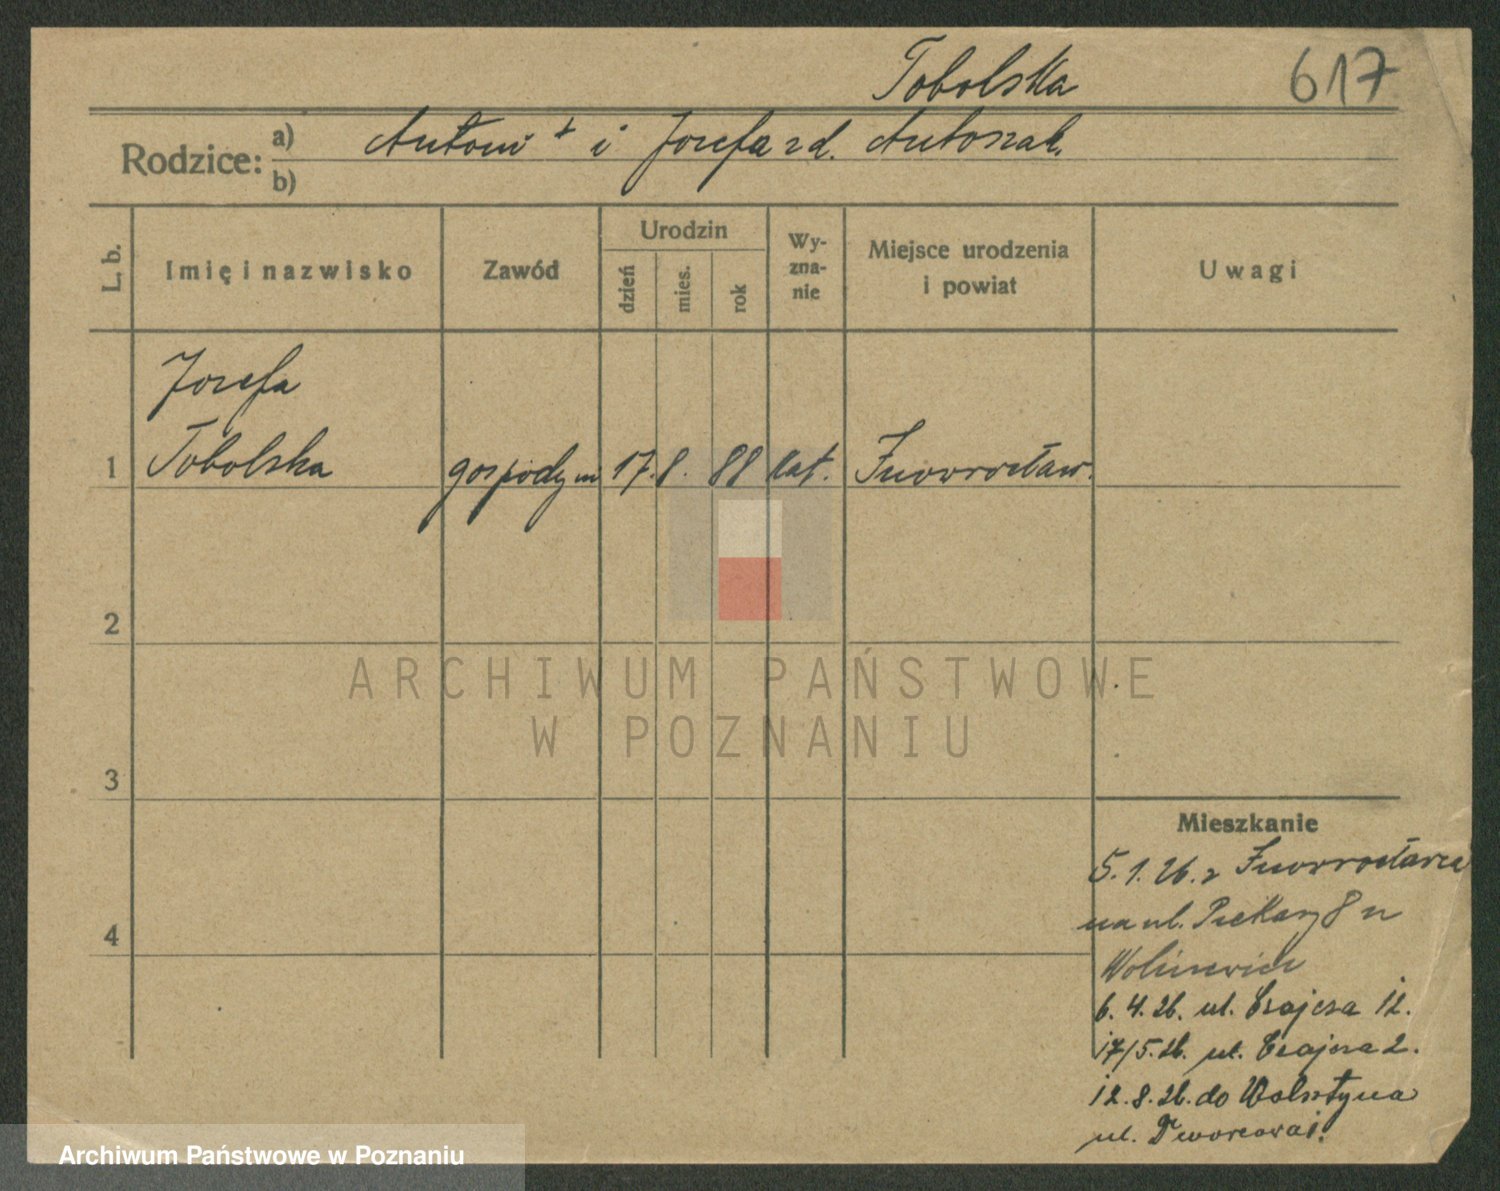 Tobolska
617
Rodzice: a) Antoni + i Józefa zd. Antoszak.
b)
L. b.
Imię i nazwisko
Zawód
Urodzin
dzień
mies.
rok
Wy-
zna-
nie
Miejsce urodzenia
i powiat
Uwagi
Józefa
1 Tobolska gospodyni 17. 8. 88 kat. Inowrocław.
2
ARCHIWUM PAŃSTWOWE
W POZNANIU
3
Mieszkanie
5.1.26. z Inowrocławia
na ul. Piekary 8 u
4
6.4.26. ul. Czajcza 12.
17/5.26. ul. Czajcza 2.
12.8.26. do Wolsztyna
ul. Dworcowa 1.
Archiwum Państwowe w Poznaniu